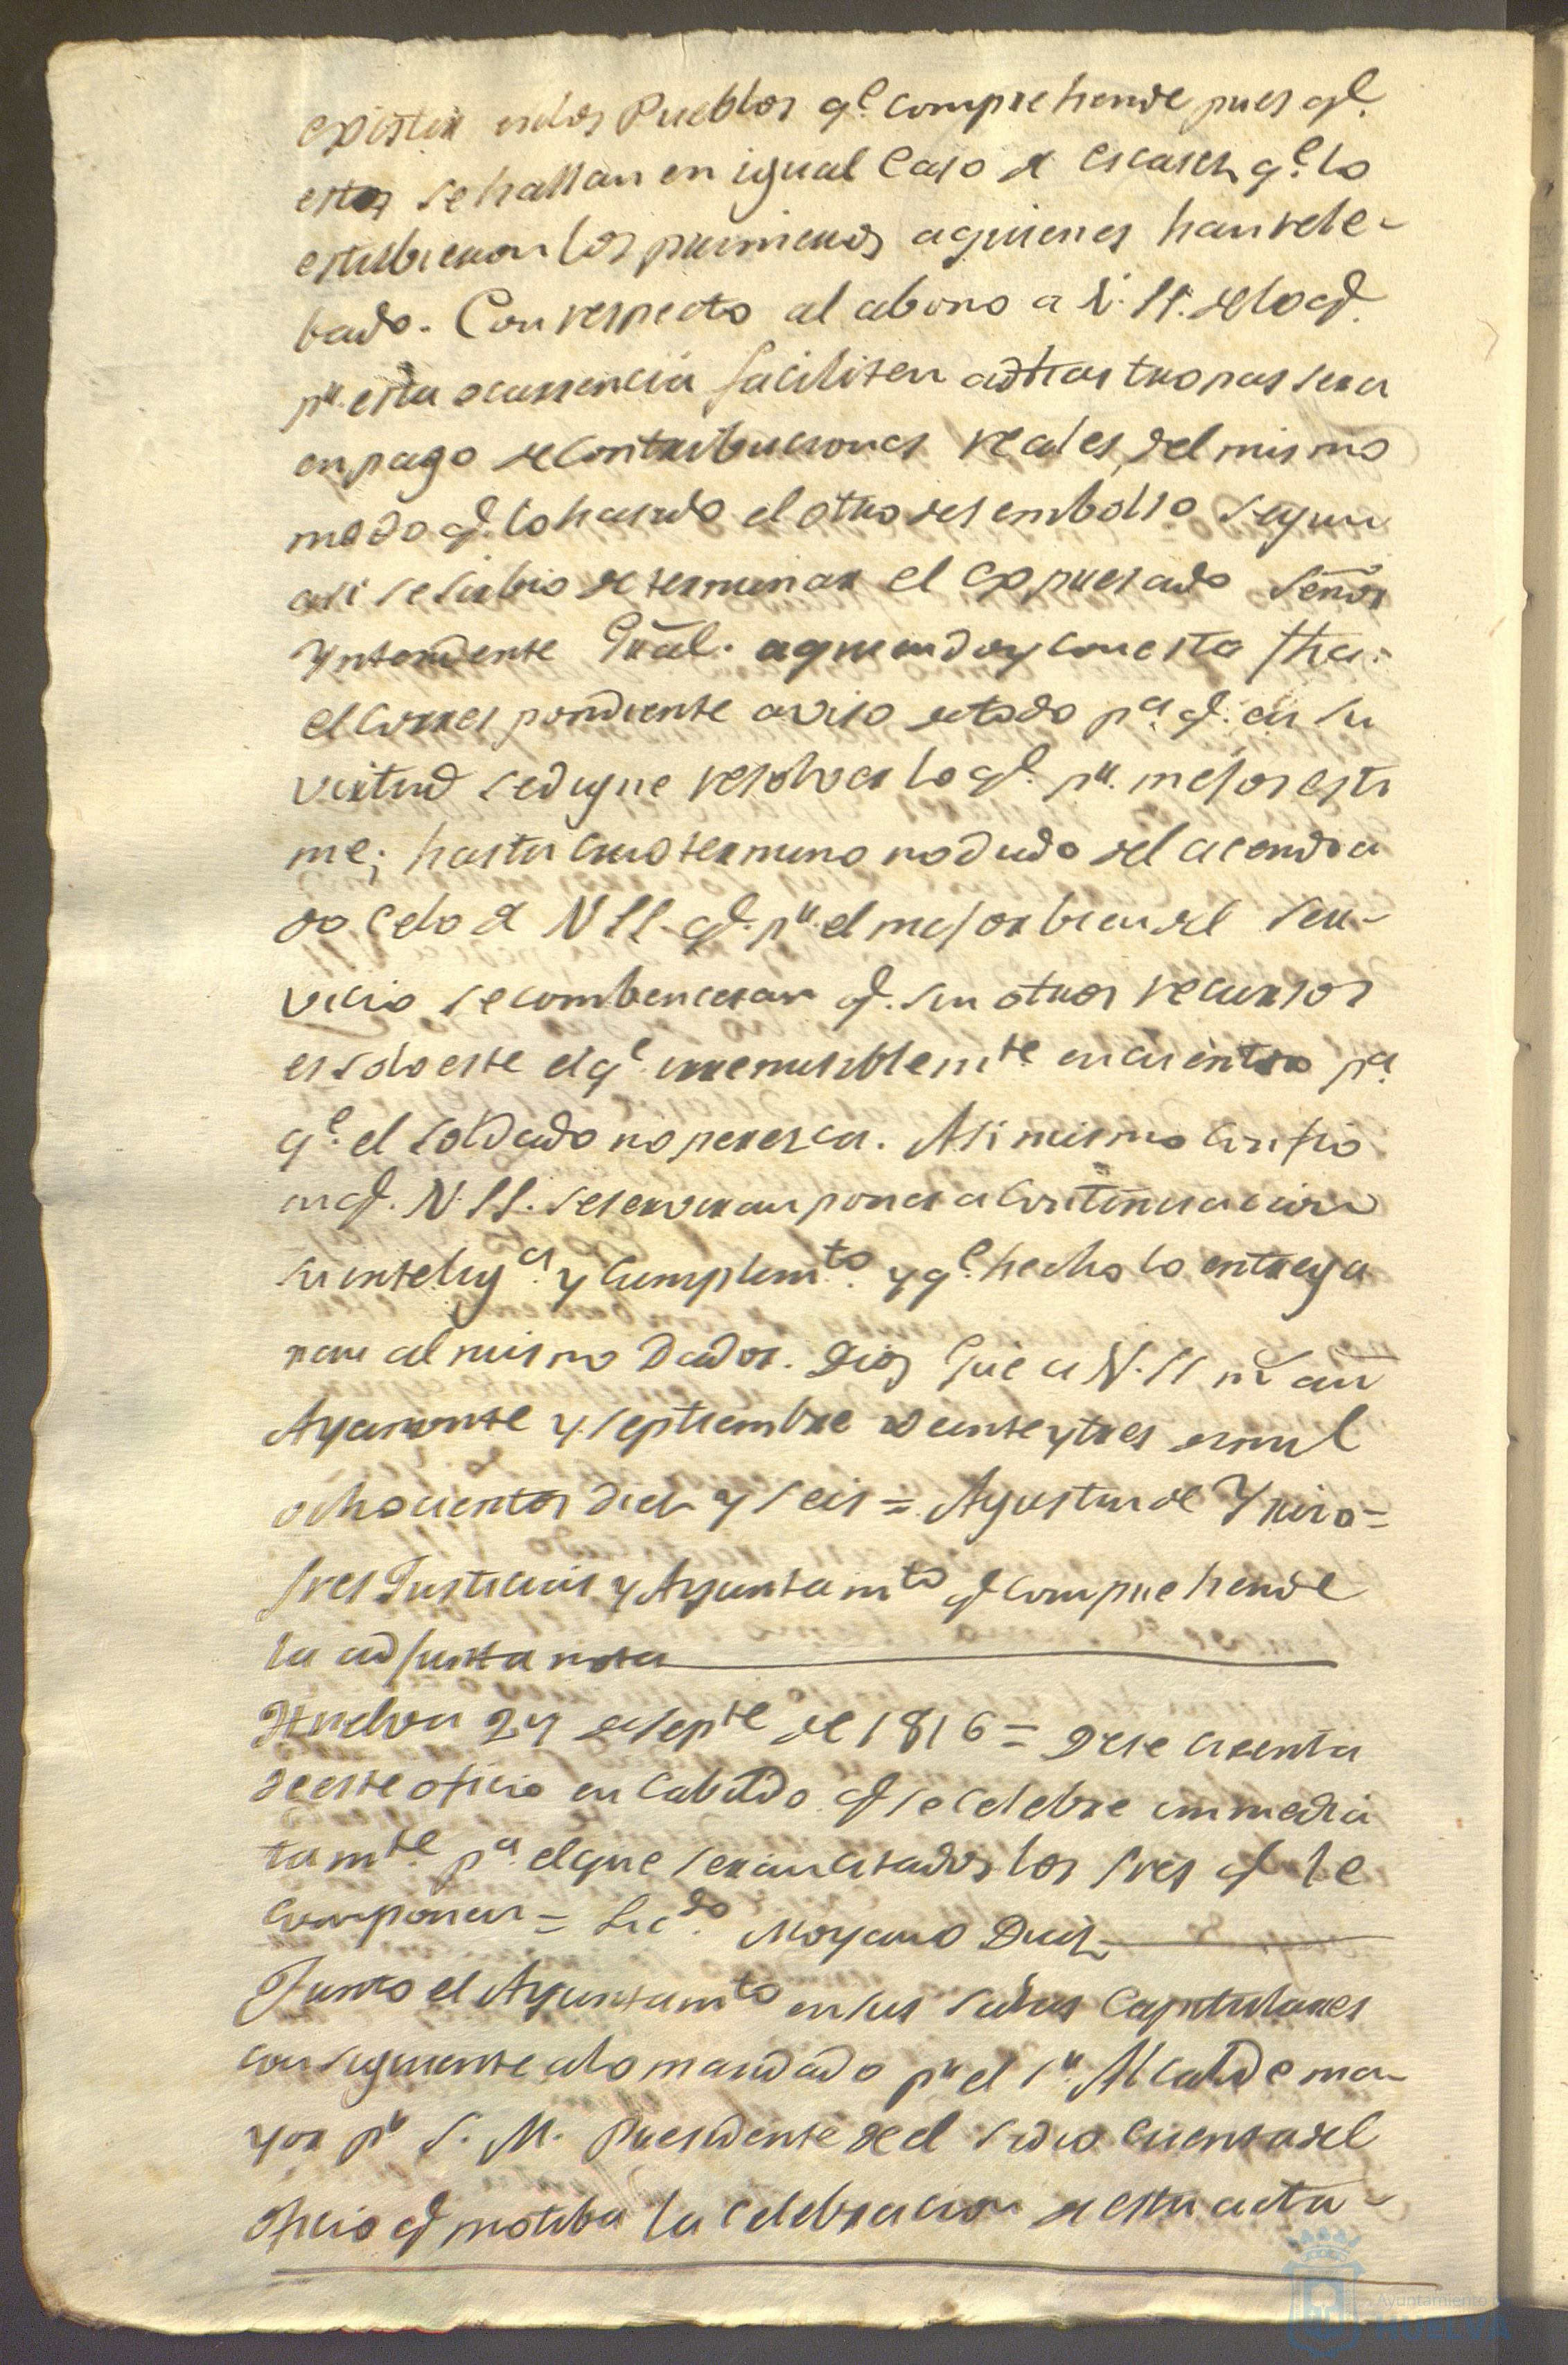 existir en los Pueblos q.e comprehende pues q.e
estos se hallan en igual caso de escases q.e lo
estubieron los primeros a quienes han rele-
bado. Con respecto al abono a V. SS. de lo q.e
p.r esta ocurrencia faciliten a dhas tropas sera
en pago de Contribuciones reales, del mismo
modo q.e lo ha sido el otro desembolso segun
asi se sirbio determinar el expresado Señor
Yntendente Gral. a quien doy con esta fha.
el correspondiente aviso de todo p.a q.e en su
virtud se digne resolver lo q.e p.r mejor esti
me; hasta cuio termino no dudo del acendra
do celo de V SS. q.e p.r el mejor bien del ser-
vicio se combenceran q.e sin otros recursos
es solo este el q.e irremisiblem.te encuentro p.a
q.e el soldado no peresca. Asi mismo confio
en q.e V. SS. se serviran poner a continuacion
su intelig.a y cumplim.to y q.e hecho lo entrega
ran al mismo Dador. Dios gue a V. SS m.s an.s
Ayamonte y Septiembre veinte y tres de mil
ochocientos diez y seis = Agustin de Yriso =
Sres Justicias y Ayuntam.to q.e comprehende
la adjunta nota
Huelva 24 de Sep.te de 1816 = Dese cuenta
de este oficio en Cabildo q.e se celebre immedia
tam.te p.a el que seran citados los Sres q.e le
componen = Lic.do Moyano Diez
Junto el Ayuntam.to en sus Salas Capitulares
consiguiente a lo mandado p.r el S.r Alcalde ma-
yor p.r S. M. Presidente de el se dio cuenta del
oficio q.e motiba la celebracion de esta acta -
Ayuntamiento
HUELVA